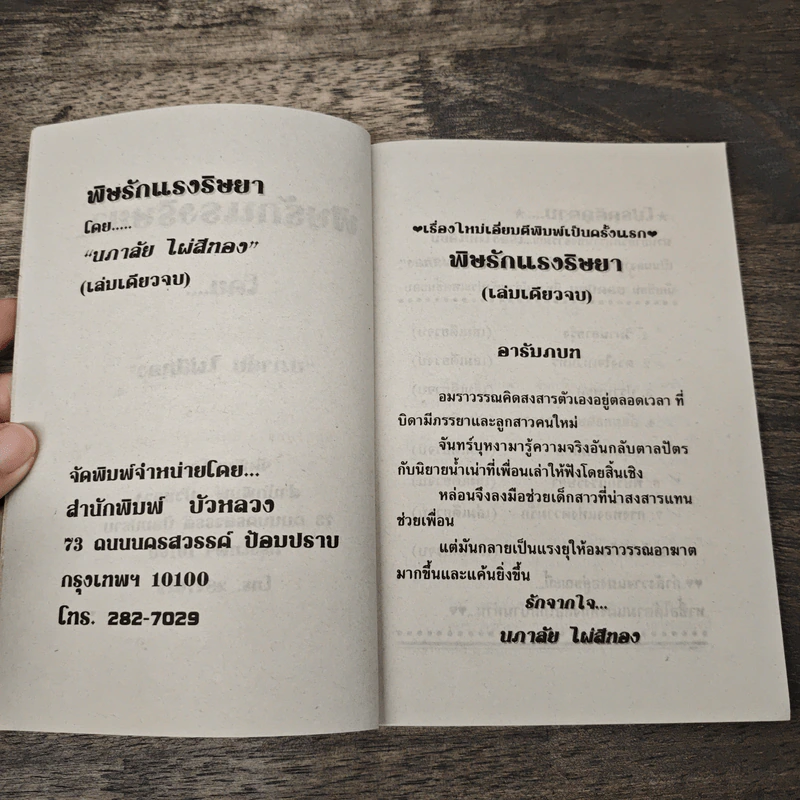 พิษรักแรงริษยา
โดย.....
“นภาลัย ไผ่สีทอง”
(เล่มเดียวจบ)
จัดพิมพ์จำหน่ายโดย...
สำนักพิมพ์ บัวหลวง
73 ถนนนครสวรรค์ ป้อมปราบ
กรุงเทพฯ 10100
โทร. 282-7029
♥เรื่องใหม่เอี่ยมตีพิมพ์เป็นครั้งแรก♥
พิษรักแรงริษยา
(เล่มเดียวจบ)
อารัมภบท
อมราวรรณคิดสงสารตัวเองอยู่ตลอดเวลา ที่
บิดามีภรรยาและลูกสาวคนใหม่
จันทร์บุหงามารู้ความจริงอันกลับตาลปัตร
กับนิยายน้ำเน่าที่เพื่อนเล่าให้ฟังโดยสิ้นเชิง
หล่อนจึงลงมือช่วยเด็กสาวที่น่าสงสารแทน
ช่วยเพื่อน
แต่มันกลายเป็นแรงยุให้อมราวรรณอาฆาต
มากขึ้นและแค้นยิ่งขึ้น
รักจากใจ...
นภาลัย ไผ่สีทอง